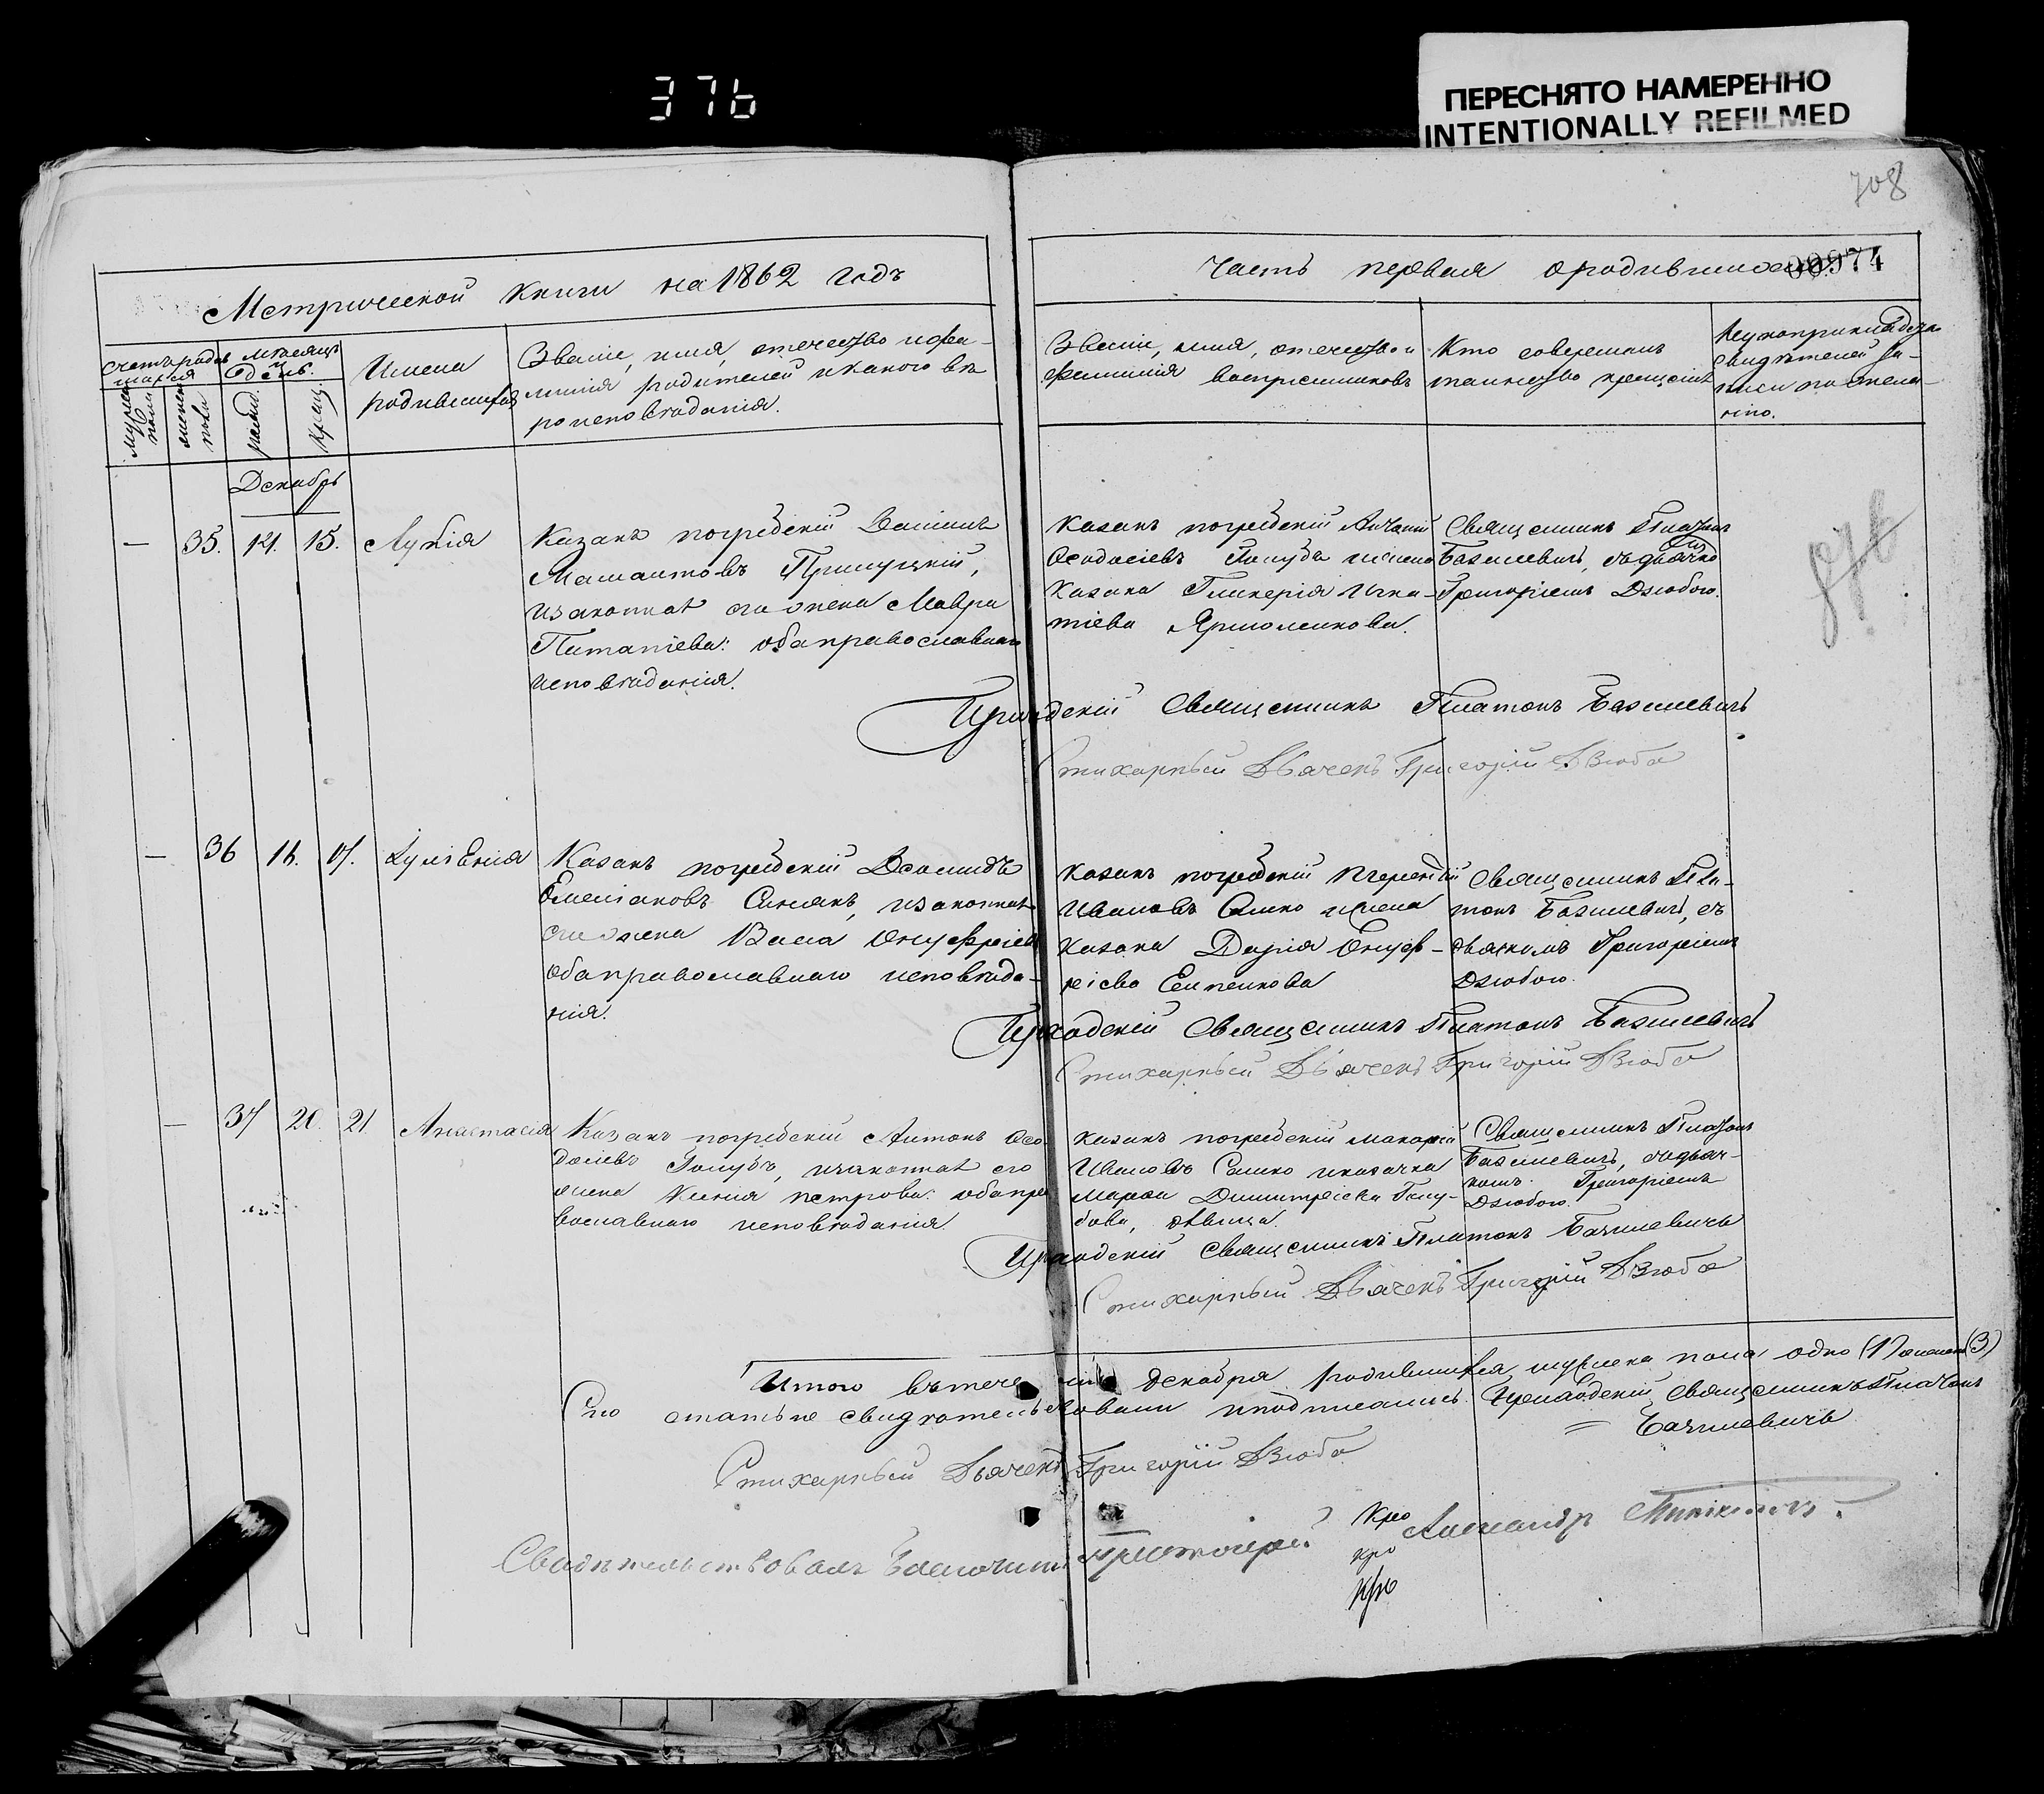 376
ПЕРЕСНЯТО НАМЕРЕННО
INTENTIONALLY REFILMED
708
Метрической книги на 1862 годъ
Часть первая о родившихся
00974
Счетъ родив
шихся
Мѣсяцъ
и
день.
мужеска
пола
женска
рожд.
крещ.
Имена
родившихся
Званіе, имя, отечество и фа-
милія родителей и какого вѣ
роисповѣданія.
Званіе, имя, отечество и
фамилія воспріемниковъ
Кто совершалъ
таинство крещенія
свидѣтелей за-
писи по жела-
нію.
Декабрь
— 35. 14. 15. Лукія
Казакъ погребскій
Прилуцкій,
и законная его жена Мавра
оба православнаго
исповѣданія.
Казакъ погребскій Антоній
Ѳеодосіевъ Голубъ и жена
Казака Гликерія Игна-
тіева Ярмоленкова.
Священникъ Платонъ
Базилевичъ, съ дьячко
Григоріемъ Дзюбою.
Приходскій Священникъ Платонъ Базилевичъ
Стихарный Дьячекъ Григорій Дзюба
— 36 16. 17. Іуліанія
Казакъ погребскій Діомидъ
Емеліановъ Синякъ, и законная
его жена Васса Онуфріева
оба православнаго исповѣда-
нія.
Казакъ погребскій Терентій
Ивановъ Сашко и жена
Казака Дарія Онуф-
ріева
Священникъ Пла-
тонъ Базилевичъ, съ
дьячкомъ Григоріемъ
Дзюбою.
Приходскій Священникъ Платонъ Базилевичъ
Стихарный Дьячекъ Григорій Дзюба
— 37 20. 21. Анастасія
Казакъ погребскій Антонъ Ѳео
досіевъ Голубъ, и законная его
жена Ксенія Петрова: оба пра
вославнаго исповѣданія
Казакъ погребскій Макарій
Ивановъ Сашко и казачка
Марѳа Димитріева Голу-
бова, дѣвица.
Священникъ Платонъ
Базилевичъ, съ дьяч-
комъ Григоріемъ
Дзюбою.
Приходскій Священникъ Платонъ Базилевичъ
Стихарный Дьячекъ Григорій Дзюба
Итого въ теченіи декабря родившихся мужеска пола одно (1) женска (3)
Сію статью свидѣтельствовали и подписались: Приходскій Священникъ Платонъ
= Базилевичъ
Стихарный Дьячекъ Григорій Дзюба
Свидѣтельствовалъ Благочинный Протоіерей Александръ